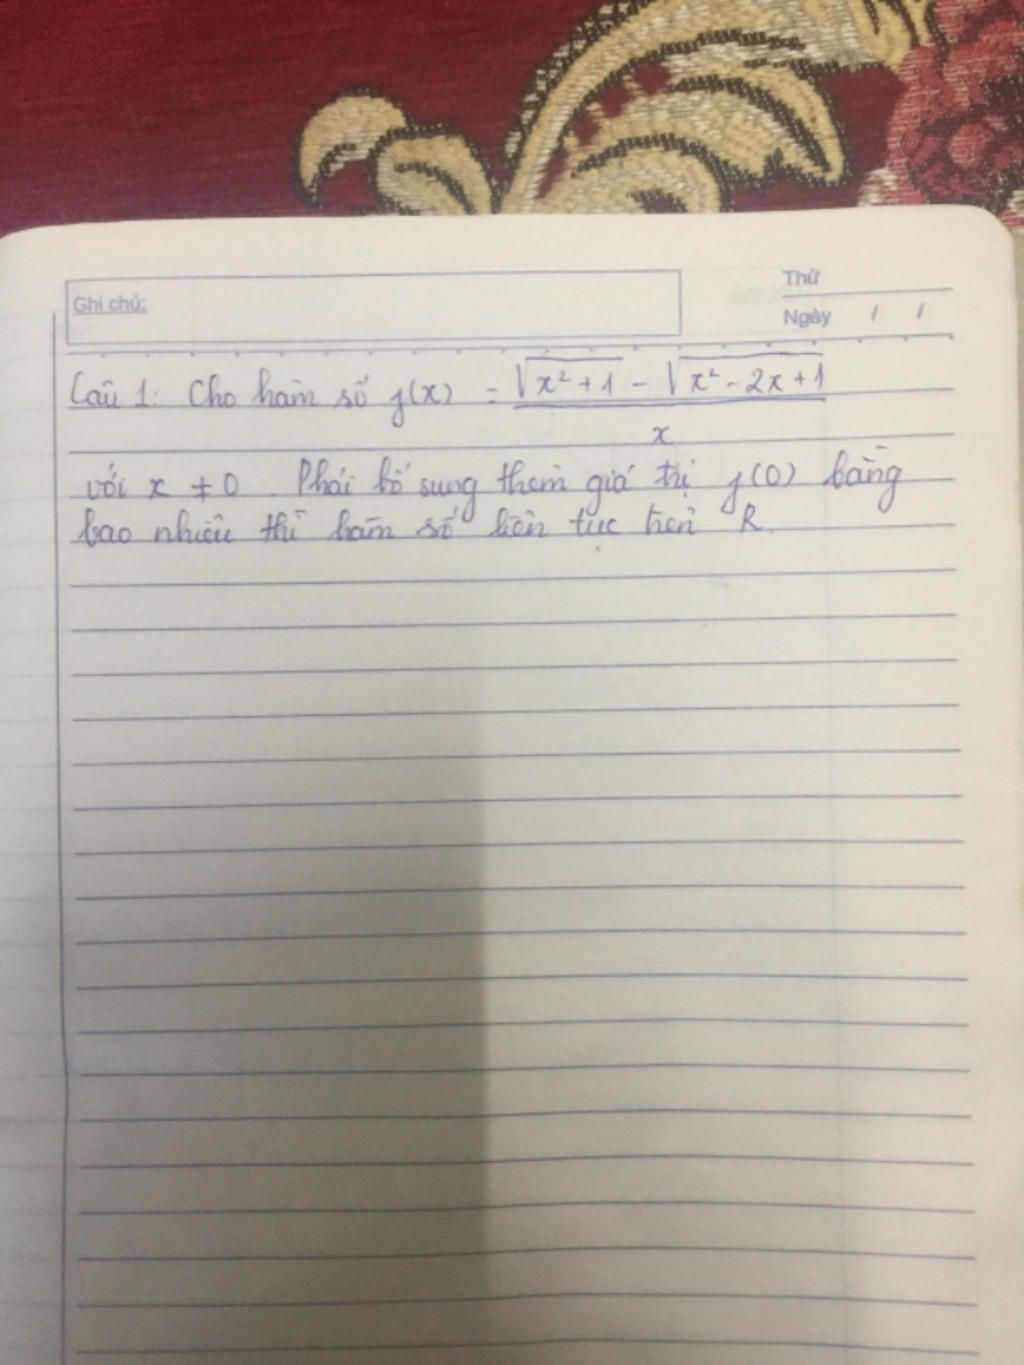 Ghi chú:
Thứ
Ngày / /
Câu 1: Cho hàm số f(x) = √(x² + 1) - √(x² - 2x + 1)
x
với x ≠ 0. Phải bổ sung thêm giá trị f(0) bằng
bao nhiêu thì hàm số liên tục trên R.